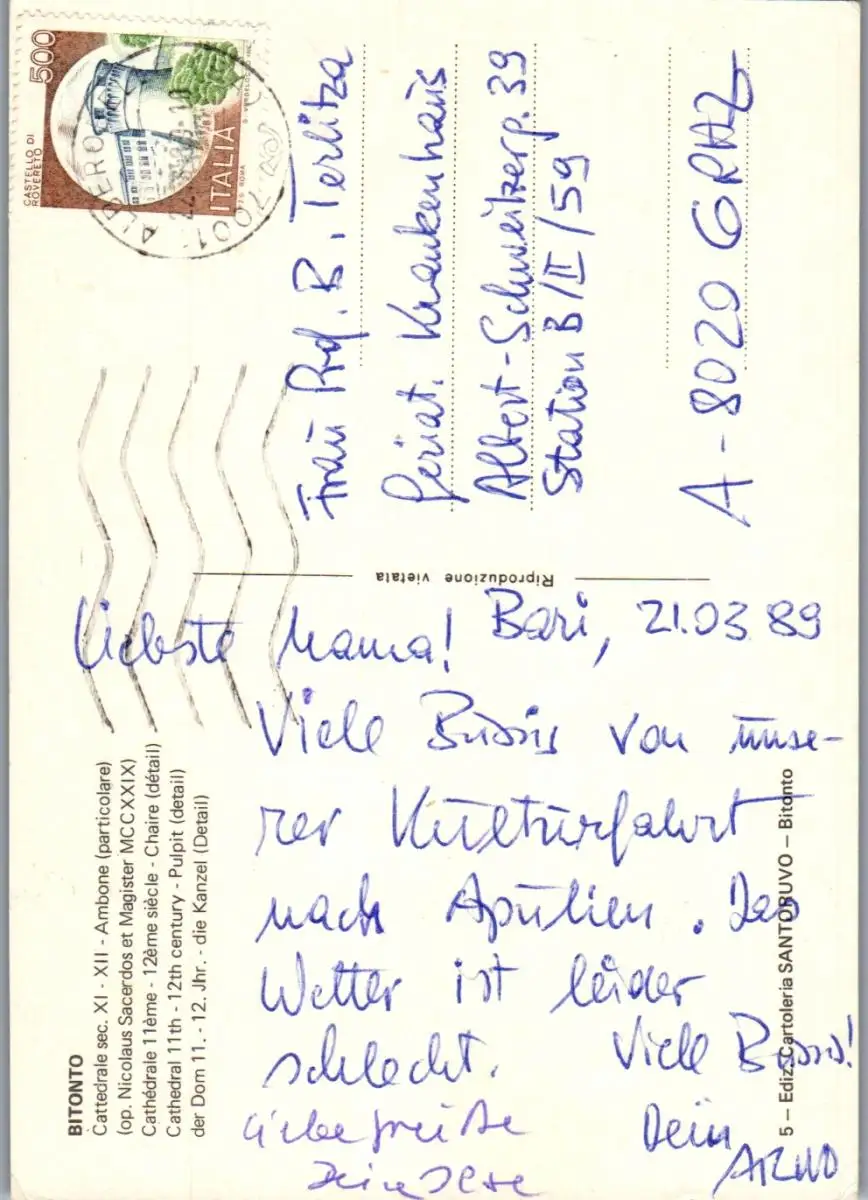 BITONTO
Cattedrale sec. XI - XII - Ambone (particolare)
(op. Nicolaus Sacerdos et Magister MCCXXIX)
Cathédrale 11ème - 12ème siècle - Chaire (détail)
Cathedral 11th - 12th century - Pulpit (detail)
der Dom 11. - 12. Jhr. - die Kanzel (Detail)
Liebste Mama! Bari, 21.03.89
Viele Bussis von unse-
rer Kulturfahrt
nach Apulien. Das
Wetter ist leider
schlecht. Viele Bussis!
Liebe Grüße Dein
Deine ARNO
5 – Ediz. Cartoleria SANTORUVO – Bitonto
Riproduzione vietata
CASTELLO DI
ROVERETO
500
ITALIA
Frau Prof. B. Terlitza
Geriat. Krankenhaus
Albert-Schweitzerg. 39
Station B/II/59
A-8020 GRAZ